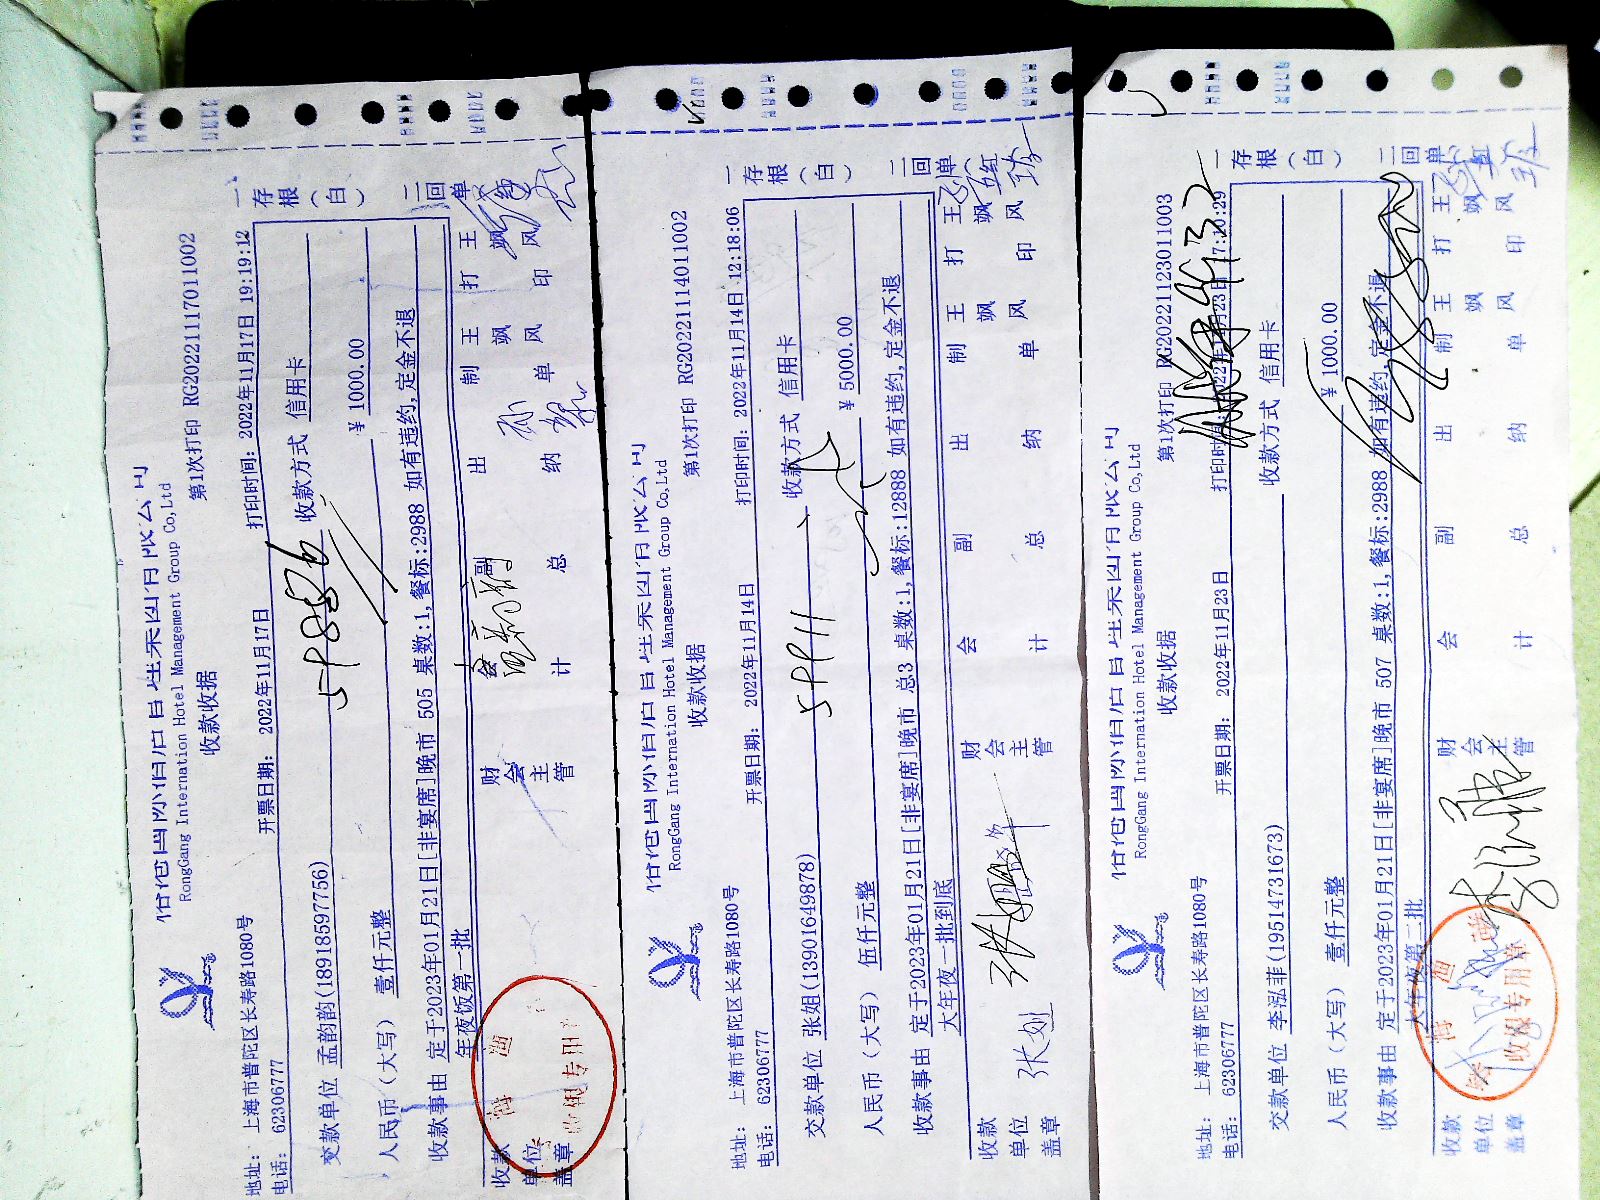 RongGang Internation Hotel Management Group Co,Ltd
收款收据
第1次打印 RG20221117011002
地址： 上海市普陀区长寿路1080号
电话： 62306777
开票日期： 2022年11月17日
打印时间： 2022年11月17日 19:19:12
交款单位 孟韵韵(18918597756)
收款方式 信用卡
人民币（大写） 壹仟元整
¥ 1000.00
收款事由 定于2023年01月21日[非宴席]晚市 505 桌数:1,餐标:2988 如有违约,定金不退
年夜饭第一批
收款单位盖章
财会主管
会计
副总
出纳
制单 王飒风
打印 王飒风
一存根（白）
二回单
RongGang Internation Hotel Management Group Co,Ltd
收款收据
第1次打印 RG20221114011002
地址： 上海市普陀区长寿路1080号
电话： 62306777
开票日期： 2022年11月14日
打印时间： 2022年11月14日 12:18:06
交款单位 张姐(13901649878)
5911
收款方式 信用卡
人民币（大写） 伍仟元整
¥ 5000.00
收款事由 定于2023年01月21日[非宴席]晚市 总3 桌数:1,餐标:12888 如有违约,定金不退
大年夜一批到底
收款单位盖章
财会主管
会计
副总
出纳
制单 王飒风
打印 王飒风
一存根（白）
二回单
RongGang Internation Hotel Management Group Co,Ltd
收款收据
第1次打印 RG20221123011003
地址： 上海市普陀区长寿路1080号
电话： 62306777
开票日期： 2022年11月23日
交款单位 李泓菲(19514731673)
收款方式 信用卡
人民币（大写） 壹仟元整
¥ 1000.00
收款事由 定于2023年01月21日[非宴席]晚市 507 桌数:1,餐标:2988 如有违约,定金不退
大年夜第二批
收款单位盖章
财会主管
会计
副总
出纳
制单 王飒风
打印 王飒风
一存根（白）
二回单